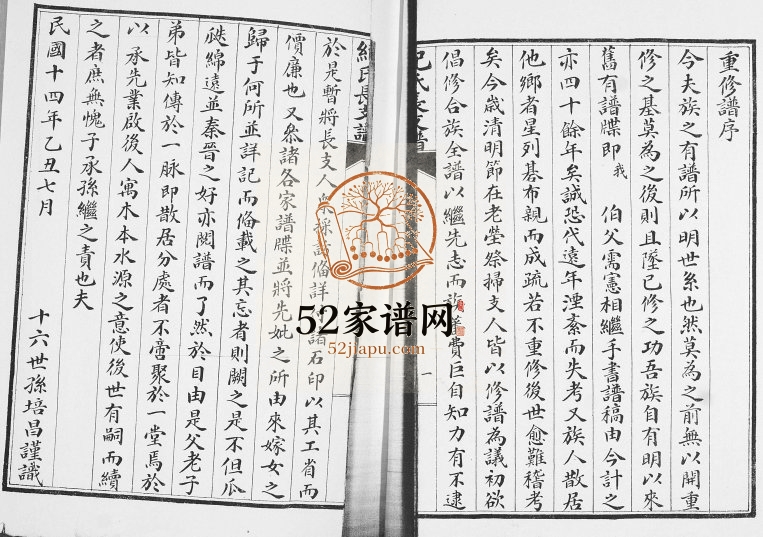 重修譜序
今夫族之有譜所以明世系也然莫為之前無以開重
修之基莫為之後則且墜已修之功吾族自有明以來
舊有譜牒即我 伯父需憲相繼手書譜稿由今計之
亦四十餘年矣誠恐代遠年湮紊而失考又族人散居
他鄉者星列棊布親而成疏若不重修後世愈難稽考
矣今歲清明節在老塋祭掃支人皆以修譜為議初欲
倡修合族全譜以繼先志而 費巨自知力有不逮
長支譜
於是暫將長支人 採 備詳 諸石印以其工省而
價廉也又叅諸各家譜牒並將先妣之所由來嫁女之
歸于何所並詳記而備載之其忘者則闕之是不但瓜
瓞綿遠並秦晉之好亦閱譜而了然於目由是父老子
弟皆知傳於一脉即散居分處者不啻聚於一堂焉於
以承先業啟後人寓木本水源之意使後世有嗣而續
之者庶無愧子承孫繼之責也夫
民國十四年乙丑七月
十六世孫培昌謹識
52家谱网
52jiapu.com